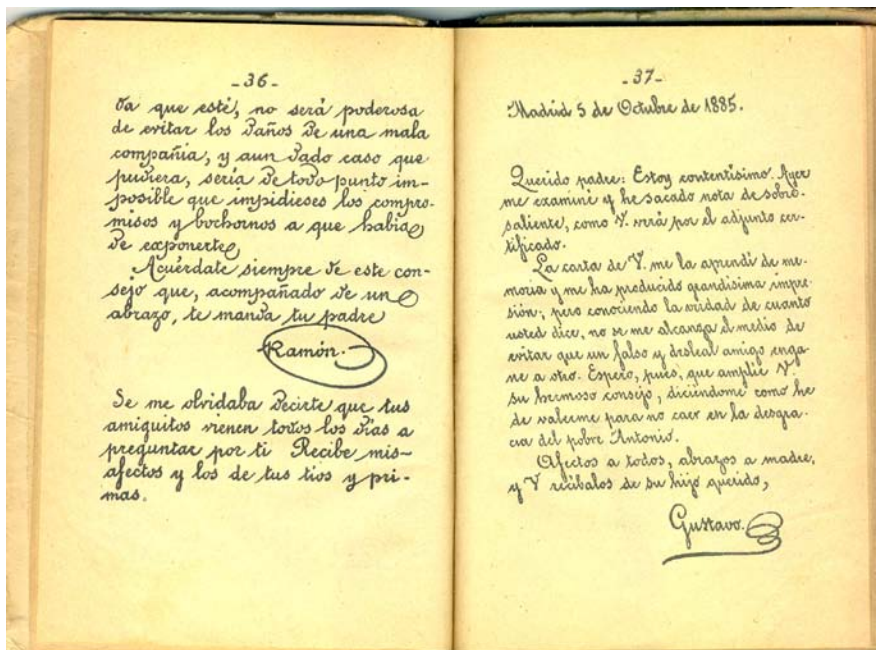 -36-
da que esté, no será poderosa
de evitar los daños de una mala
compañia, y aun dado caso que
pudiera, sería de todo punto im-
posible que impidieses los compro-
misos y bochornos a que había
de exponerte
Acuérdate siempre de este con-
sejo que, acompañado de un
abrazo, te manda tu padre
Ramón.
Se me olvidaba decirte que tus
amiguitos vienen todos los días a
preguntar por ti Recibe mis
afectos y los de tus tios y pri-
mas.
-37-
Madrid 5 de Octubre de 1885.
Querido padre: Estoy contentísimo. Ayer
me examiné y he sacado nota de sobre-
saliente, como V. verá por el adjunto cer-
tificado.
La carta de V. me la aprendí de me-
moria y me ha producido grandísima impre-
sión; pero conociendo la verdad de cuanto
usted dice, no se me alcanza el medio de
evitar que un falso y desleal amigo enga-
ne a otro. Espero, pues, que amplíe V.
su hermoso consejo, diciéndome como he
de valerme para no caer en la desgra-
cia del pobre Antonio.
Afectos a todos, abrazos a madre,
y V recíbalos de su hijo querido,
Gustavo.